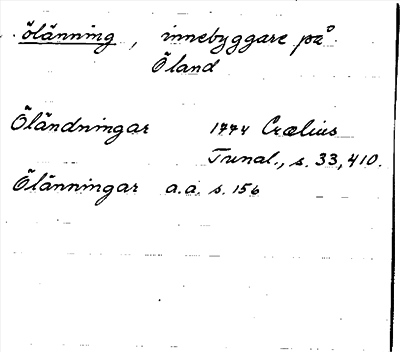 ölänning, innebyggare på
Öland
Öländningar 1774 Crælius
Tunal., s. 33, 410.
Ölänningar a.a. s. 156